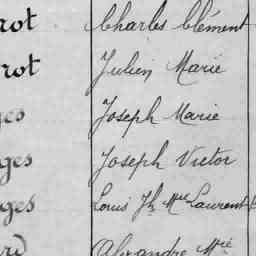 rot Charles Clément
rot Julien Marie
ges Joseph Marie
ges Joseph Victor
ges Louis Jh Mie Laurent
ard Alexandre Mie